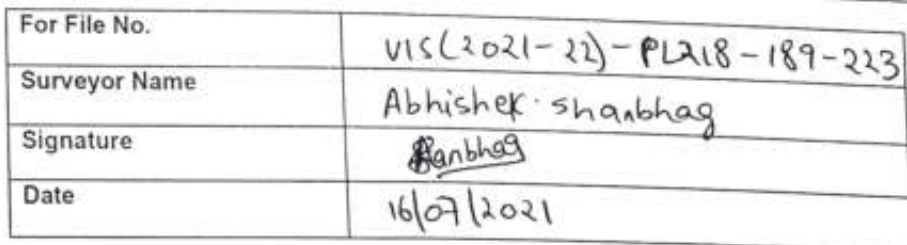 For File No. VIS(2021-22)-PL218-189-223
Surveyor Name Abhishek. shanbhag
Signature Shanbhag
Date 16/07/2021